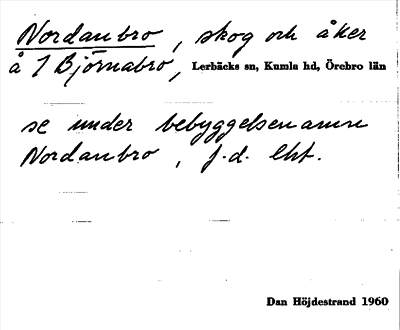 Nordanbro, skog och åker
å 1 Björnabro, Lerbäcks sn, Kumla hd, Örebro län
se under bebyggelsenamn
Nordanbro, f.d. lht.
Dan Höjdestrand 1960